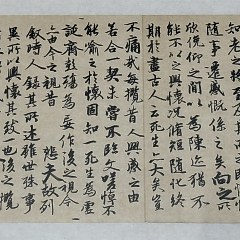 知老之將至及其所之
隨事遷感慨係之矣向之所
欣俛仰之間以為陳迹猶不
能不以之興懷況脩短隨化終
期於盡古人云死生亦大矣豈
不痛哉每攬昔人興感之由
若合一契未嘗不臨文嗟悼不
能喻之於懷固知一死生為虛
誕齊彭殤為妄作後之視今
亦由今之視昔悲夫故列
敘時人錄其所述雖世殊事
異所以興懷其致一也後之攬